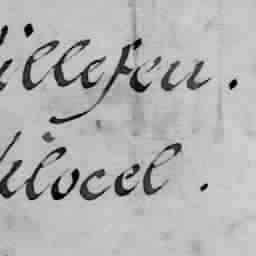 illefeu.
ilocel.